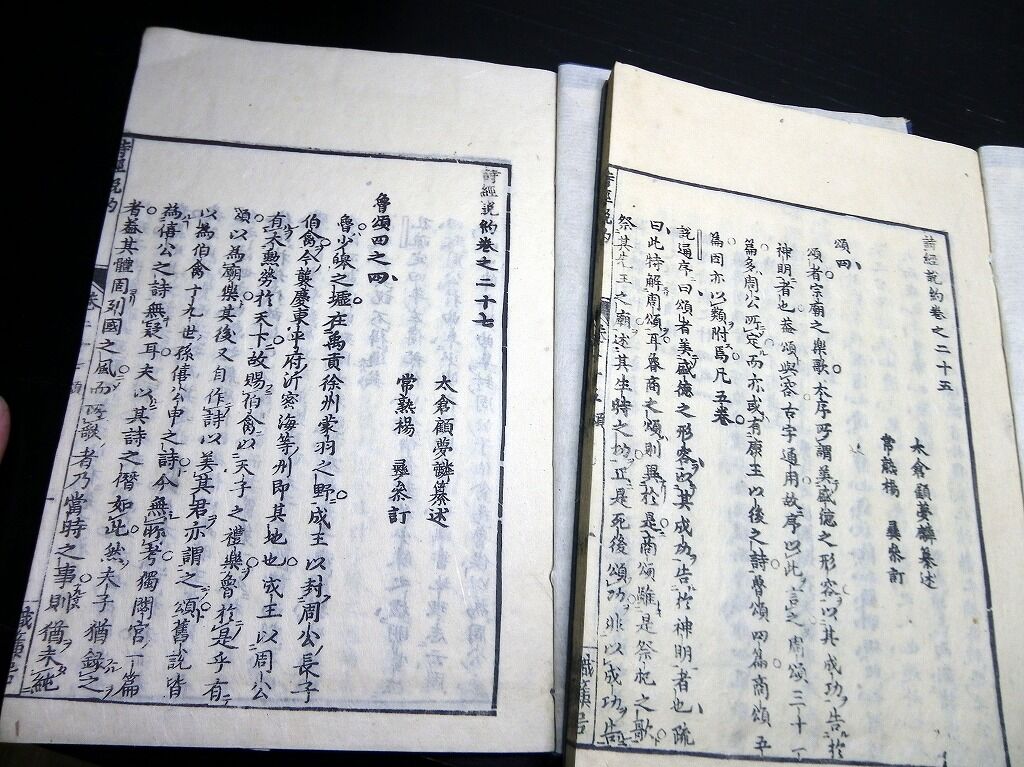 詩經說約卷之二十五
太倉顧夢麟纂述
常熟楊彝參訂
頌四
頌者宗廟之樂歌大序所謂美盛德之形容以其成功告於
神明者也葢頌與容古字通用故序以此言之周頌三十一
篇多周公所定而亦或有康王以後之詩魯頌四篇商頌五
篇因亦以類附焉凡五卷
說通序曰頌者美盛德之形容以其成功告於神明者也疏
曰此特解周頌耳魯商之頌則異於是商頌雖是祭祀之歌
祭其先王之廟述其生時之功正是死後頌功非以成功告
詩經說約
詩經說約卷之二十七
太倉顧夢麟纂述
常熟楊彝參訂
魯頌四之四
魯少皥之墟在禹貢徐州蒙羽之野成王以封周公長子
伯禽今襲慶東平府沂密海等州即其地也成王以周公
有大勲勞於天下故賜伯禽以天子之禮樂魯於是乎有
頌以為廟樂其後又自作詩以美其君亦謂之頌舊說皆
以為伯禽十九世孫僖公申之詩今無所考獨閟宮一篇
為僖公之詩無疑耳夫以其詩之僭如此然夫子猶録之
者葢其體固列國之風而所歌者乃當時之事則猶未純
詩經說約